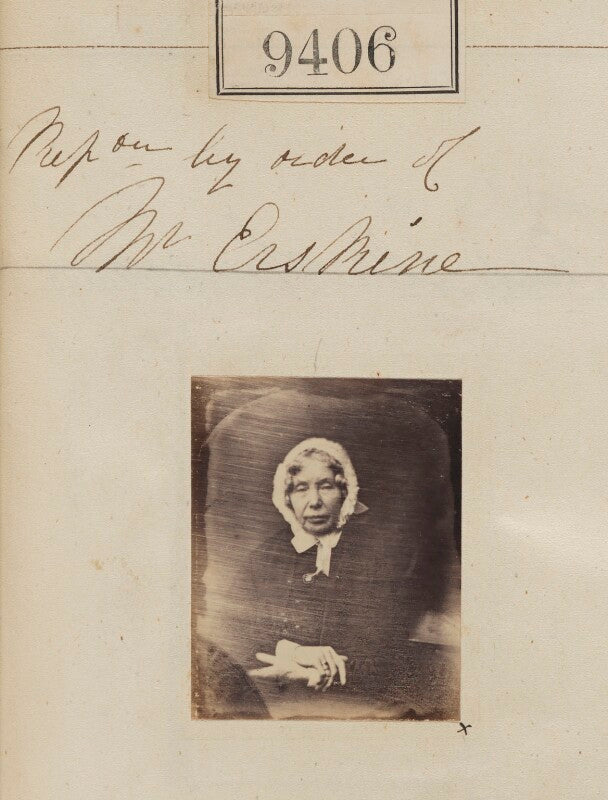 9406
Rep on by order of
Mr Erskine
x